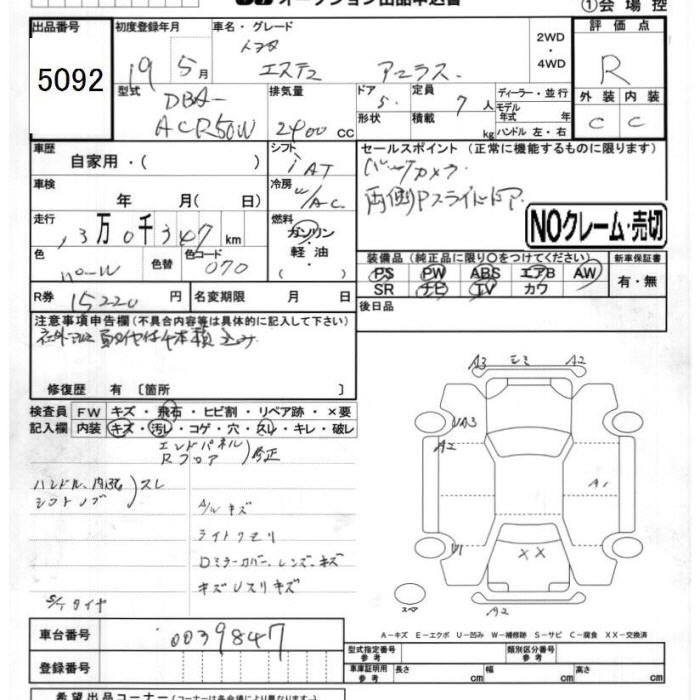 オークション出品申込書
①会場控
出品番号
5092
初度登録年月
19年5月
車名・グレード
トヨタ
エスティマ アエラス
2WD
・
4WD
評価点
R
型式
DBA-
ACR50W
排気量
2400cc
ドア
5
定員
7人
形状
積載
kg
ディーラー・並行
モデル年式 年
ハンドル 左・右
外装 内装
C C
車歴
自家用・( )
シフト
iAT
セールスポイント (正常に機能するものに限ります)
バックカメラ
両側Pスライドドア
車検
年 月( 日)
冷房
AC
NOクレーム・売切
走行
13万0千347km
燃料
ガソリン
・
軽油
・
( )
色
パールW
色替
色コード
070
装備品(純正品に限り○をつけてください)
PS PW ABS エアB AW
SR ナビ TV カワ
新車保証書
有・無
R券
15220円
名変期限 月 日
後日品
注意事項申告欄(不具合内容等は具体的に記入して下さい)
修復歴 有 〔箇所 〕
検査員
記入欄
FW キズ・飛石・ヒビ割・リペア跡・×要
内装 キズ・汚レ・コゲ・穴・スレ・キレ・破レ
エンドパネル
Rフロア
修正
ハンドル、内張
シフトノブ
スレ
A/Wキズ
ライトクモリ
Dミラーカバー、レンズ、キズ
キズUスリキズ
S/Tタイヤ
A3 モミ A2
UA3
A2
A1
U1
XX
スペア
A2
A-キズ E-エクボ U-凹み W-補修跡 S-サビ C-腐食 XX-交換済
車台番号
0039847
登録番号
型式指定番号
参考
類別区分番号
参考
車庫証明用
参考
長さ cm
幅 cm
高さ cm
希望出品コーナー(コーナーは各会場により異なります)